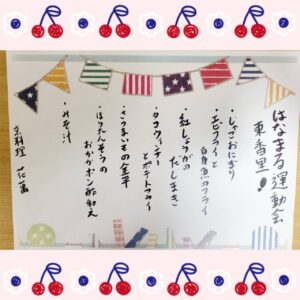 はなまる運動会
東香里!
・じゃこおにぎり
・エビフライと
白身魚のフライ
・紅しょうがの
だしまき
・タコウィンナー
とポテトフライ
・さつまいもの金平
・ほうれんそうの
おかかポン酢和え
・みそ汁
京料理 花萬